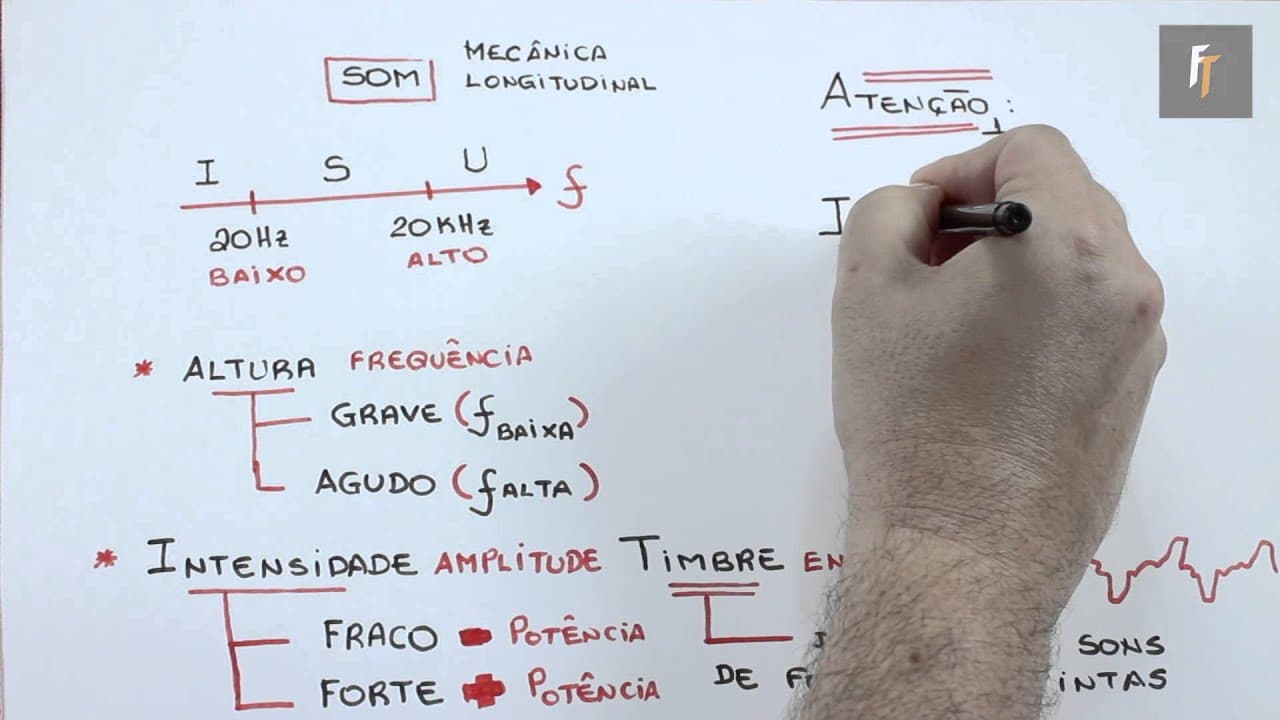 SOM
MECÂNICA
LONGITUDINAL
I S U
f
20Hz
BAIXO
20KHz
ALTO
* ALTURA FREQUÊNCIA
GRAVE (f BAIXA)
AGUDO (f ALTA)
* INTENSIDADE AMPLITUDE
FRACO - POTÊNCIA
FORTE + POTÊNCIA
TIMBRE
SONS
DE
ATENÇÃO:
I
FT